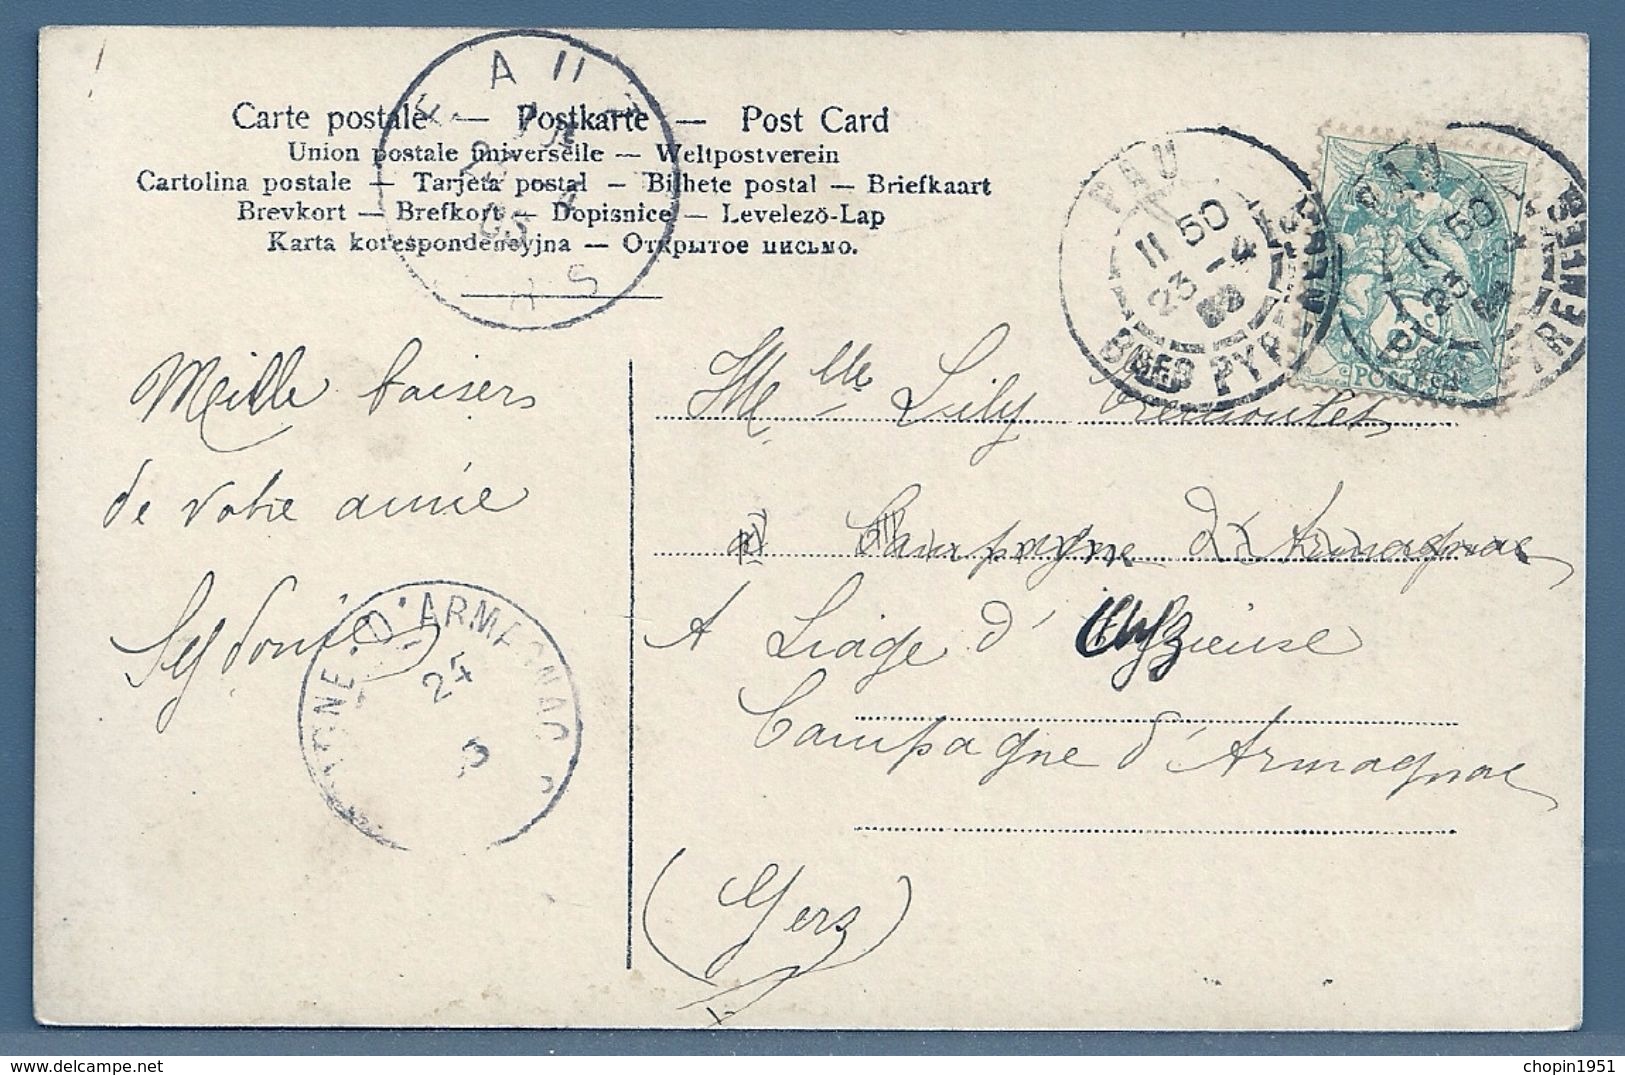 Carte postale — Postkarte — Post Card
Union postale universelle — Weltpostverein
Cartolina postale — Tarjeta postal — Bilhete postal — Briefkaart
Brevkort — Brefkort — Dopisnice — Levelező-Lap
Karta korespondencyjna — Открытое письмо.
PAU
11 50
23 - 4
BSES PYRENEES
PAU
11 50
23
POSTES
Mille baisers
de votre amie
Sydonie
D'ARMAGNAC
24
Melle Lily
Campagne d'Armagnac
A Liäge d'
Campagne d'Armagnac
(Gers)
chopin1951